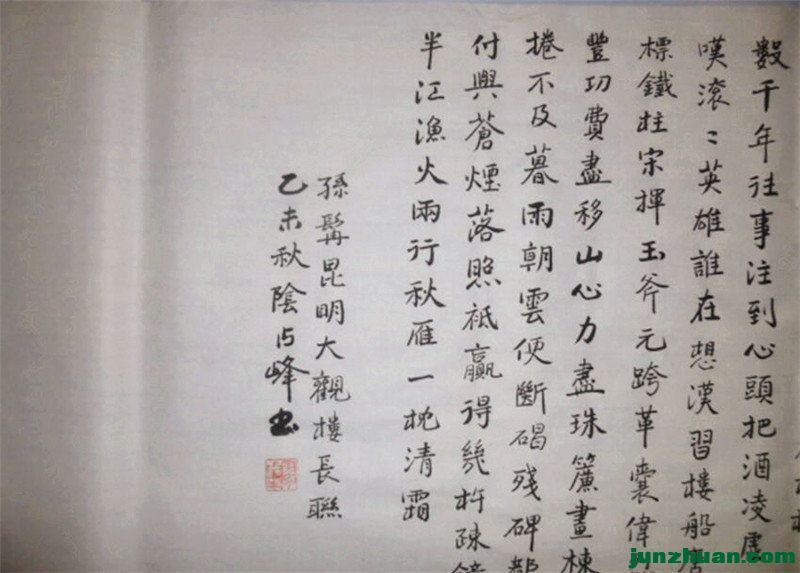 數千年往事注到心頭把酒凌虛
嘆滚〻英雄誰在想漢習樓船唐
標鐵柱宋揮玉斧元跨革囊偉
豐功費盡移山心力盡珠簾畫棟
捲不及暮雨朝雲便斷碣殘碑都
付與蒼煙落照祗贏得幾杵疎鐘
半江漁火兩行秋雁一枕清霜
孫髯昆明大觀樓長聯
乙未秋陰占峰书
junzhuan.com